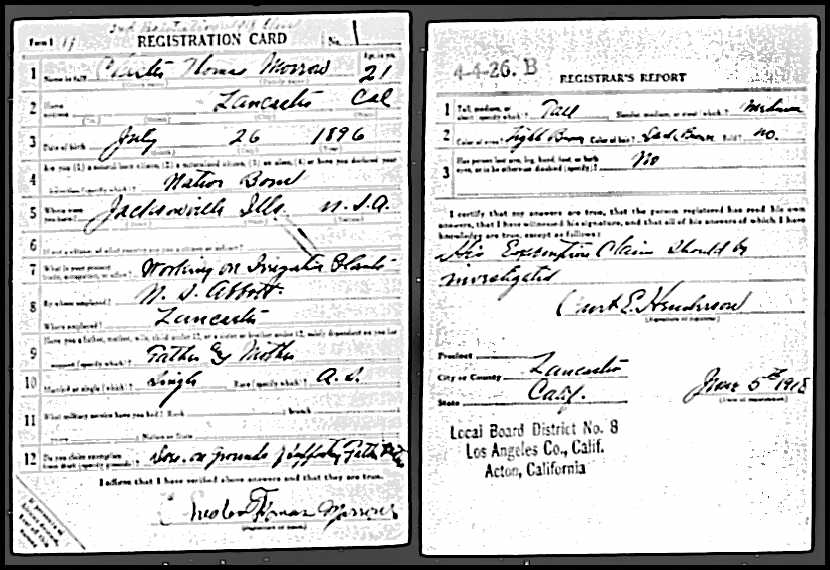 Form 1 REGISTRATION CARD No. 1
1 Name in full Thomas Morrow 21
(Given name) (Family name) Age, in yrs.
2 Home address Lancaster Cal
(No.) (Street) (City) (State)
3 Date of birth July 26 1896
(Month) (Day) (Year)
4 Are you (1) a natural born citizen, (2) a naturalized citizen, (3) an alien, (4) or have you declared your
intention (specify which)? Native Born
5 Where were you born? Jacksonville Ills. U.S.A.
(Town) (State) (Nation)
6 If not a citizen, of what country are you a citizen or subject?
7 What is your present trade, occupation, or office? Working on Irrigation Plants
8 By whom employed? Abbott
Where employed? Lancaster
9 Have you a father, mother, wife, child under 12, or a sister or brother under 12, solely dependent on you for
support (specify which)? Father & Mother
10 Married or single (which)? Single Race (specify which)?
11 What military service have you had? Rank branch
years Nation or State
12 Do you claim exemption from draft (specify grounds)? on grounds of supporting Father
I affirm that I have verified above answers and that they are true.
Thomas Morrow
(Signature or mark)
4-4-26. B REGISTRAR'S REPORT
1 Tall, medium, or short (specify which)? Tall Slender, medium, or stout (which)? Medium
2 Color of eyes? Light Brown Color of hair? Dark Brown Bald? No.
3 Has person lost arm, leg, hand, foot, or both
eyes, or is he otherwise disabled (specify)? No
I certify that my answers are true, that the person registered has read his own
answers, that I have witnessed his signature, and that all of his answers of which I have
knowledge are true, except as follows:
His Exemption Claim should be
investigated
E. Henderson
(Signature of registrar)
Precinct
City or County Lancaster
State Calif. June 5th 1918
(Date of registration)
Local Board District No. 8
Los Angeles Co., Calif.
Acton, California